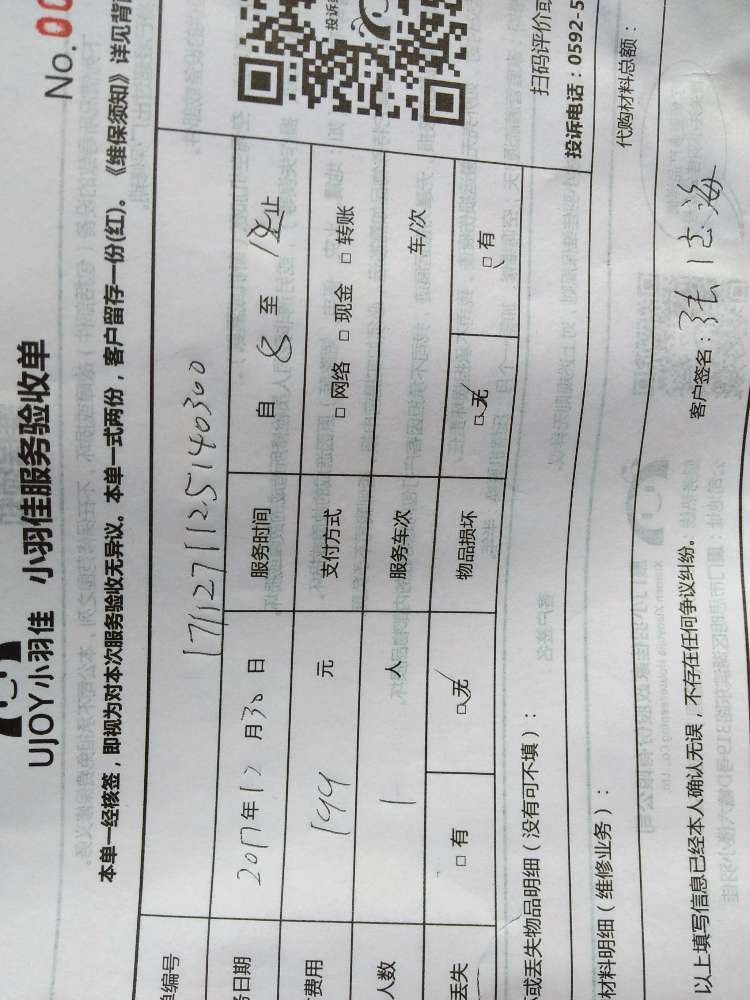 No.00
UJOY小羽佳 小羽佳服务验收单
本单一经核签，即视为对本次服务验收无异议。本单一式两份，客户留存一份(红)。《维保须知》详见背面
单编号 1711271125140300
务日期 2017年12月30日 服务时间 自 8 至 12止
费用 144 元 支付方式 □网络 □现金 □转账
人数 1 人 服务车次 车/次
丢失 □有 □无 物品损坏 □无 □有
或丢失物品明细（没有可不填）：
材料明细（维修业务）： 代购材料总额：
以上填写信息已经本人确认无误，不存在任何争议纠纷。 客户签名：张志海
投诉
扫码评价或
投诉电话：0592-5